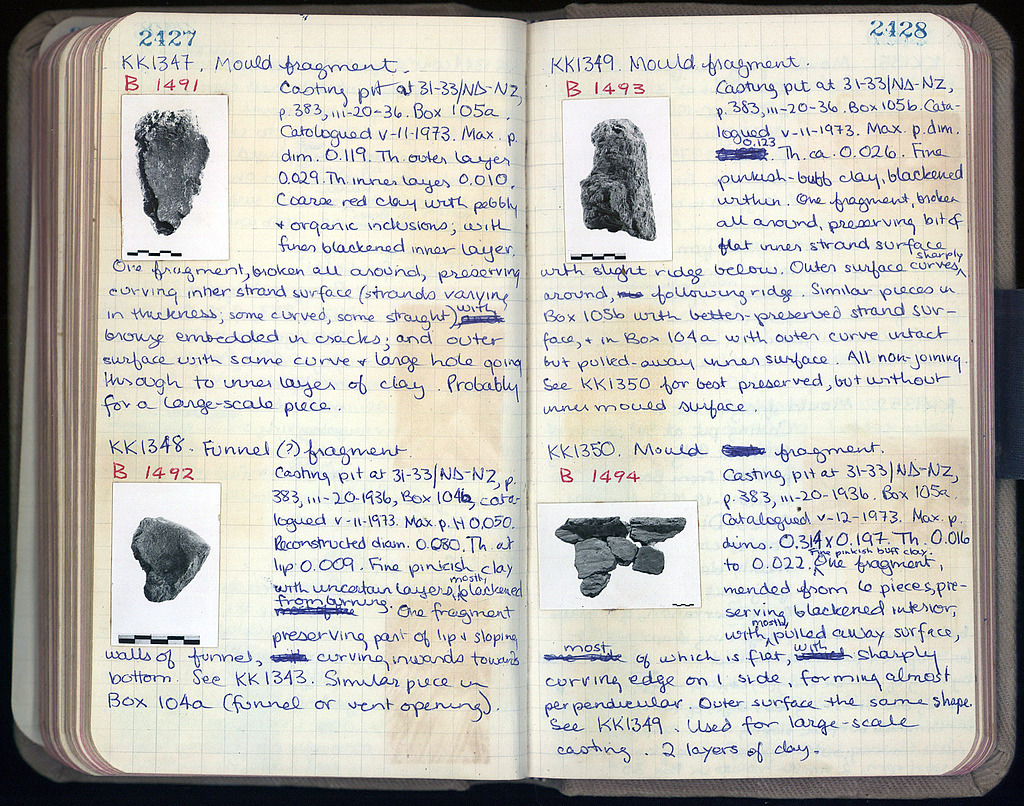 2427
KK1347. Mould fragment.
B 1491
Casting pit at 31-33/ΝΔ-ΝΖ,
p. 383, III-20-36. Box 105a.
Catologued v-11-1973. Max. p.
dim. 0.119. Th. outer layer
0.029. Th inner layer 0.010.
Coarse red clay with pebbly
+ organic inclusions, with
finer blackened inner layer.
One fragment, broken all around, preserving
curving inner strand surface (strands varying
in thickness; some curved, some straight), with
bronze embedded in cracks; and outer
surface with same curve + large hole going
through to inner layer of clay. Probably
for a large-scale piece.
KK1348. Funnel (?) fragment.
B 1492
Casting pit at 31-33/ΝΔ-ΝΖ, p.
383, III-20-1936, Box 104b, cata-
logued v-11-1973. Max p. H 0.050.
Reconstructed diam. 0.080. Th. at
lip 0.009. Fine pinkish clay
with uncertain layers, mostly blackened
from burning. One fragment
preserving part of lip + sloping
walls of funnel, curving inwards towards
bottom. See KK1343. Similar piece in
Box 104a (funnel or vent opening).
2428
KK1349. Mould fragment.
B 1493
Casting pit at 31-33/ΝΔ-ΝΖ,
p. 383, III-20-36. Box 105b. Cata-
logued v-11-1973. Max. p. dim.
0.123. Th. ca. 0.026. Fine
pinkish-buff clay, blackened
within. One fragment, broken
all around, preserving bit of
flat inner strand surface
with slight ridge below. Outer surface curves sharply
around, following ridge. Similar pieces in
Box 105b with better-preserved strand sur-
face, + in Box 104a with outer curve intact
but pulled-away inner surface. All non-joining.
See KK1350 for best preserved, but without
inner mould surface.
KK1350. Mould fragment.
B 1494
Casting pit at 31-33/ΝΔ-ΝΖ,
p. 383, III-20-1936. Box 105a.
Catalogued v-12-1973. Max. p.
dims. 0.314 x 0.197. Th. 0.016
to 0.022. Fine pinkish buff clay. One fragment,
mended from 6 pieces, pre-
serving blackened interior,
with mostly pulled away surface,
most of which is flat, with sharply
curving edge on 1 side, forming almost
perpendicular. Outer surface the same shape.
See KK1349. Used for large-scale
casting. 2 layers of clay.